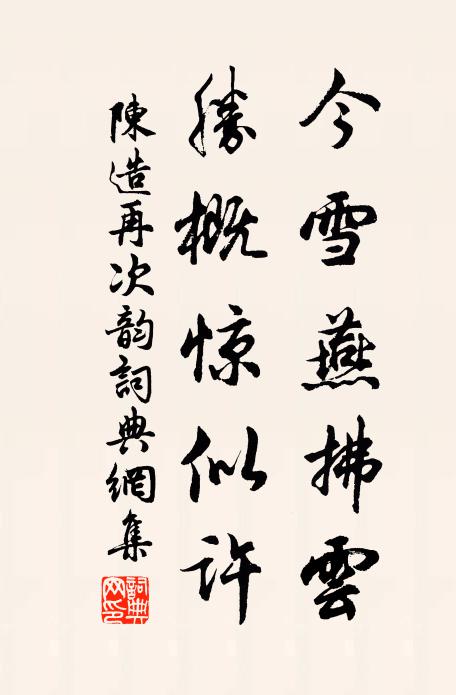 今雪燕拂雲
勝概惊似許
陳造再次韵詞典網集
詞典網印